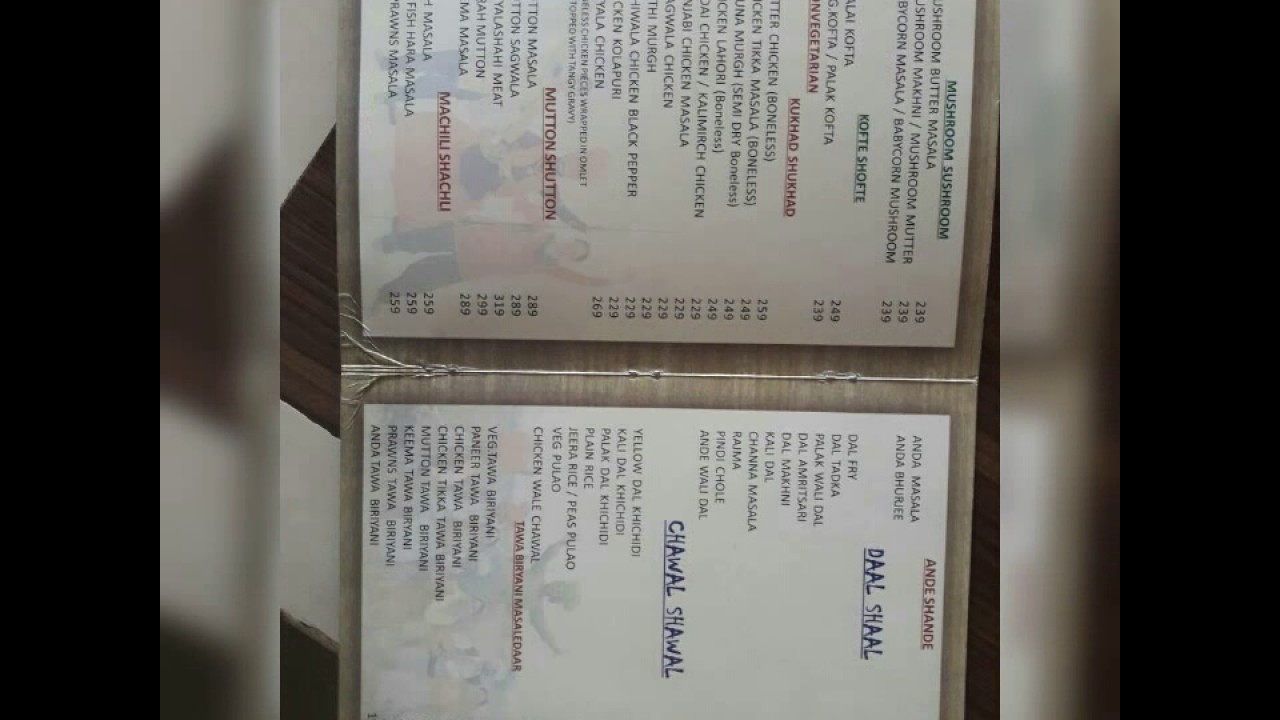 MUSHROOM SUSHROOM
USHROOM BUTTER MASALA 239
USHROOM MAKHNI / MUSHROOM MUTTER 239
BYCORN MASALA / BABYCORN MUSHROOM 239
KOFTE SHOFTE
ALAI KOFTA 249
G.KOFTA / PALAK KOFTA 239
NVEGETARIAN
KUKHAD SHUKHAD
TTER CHICKEN (BONELESS) 259
ICKEN TIKKA MASALA (BONELESS) 249
UNA MURGH (SEMI DRY Boneless) 249
ICKEN LAHORI (Boneless) 249
DAI CHICKEN / KALIMIRCH CHICKEN 229
NJABI CHICKEN MASALA 229
AGWALA CHICKEN 229
THI MURGH 229
HIWALA CHICKEN BLACK PEPPER 229
CKEN KOLAPURI 229
YALA CHICKEN 269
ELESS CHICKEN PIECES WRAPPED IN OMLET
TOPPED WITH TANGY GRAVY)
MUTTON SHUTTON
TTON MASALA 289
TTON SAGWALA 289
YALASHAHI MEAT 319
BAH MUTTON 299
MA MASALA 289
MACHILI SHACHLI
H MASALA 259
FISH HARA MASALA 259
RAWNS MASALA 259
ANDE SHANDE
ANDA MASALA
ANDA BHURJEE
DAAL SHAAL
DAL FRY
DAL TADKA
PALAK WALI DAL
DAL AMRITSARI
DAL MAKHNI
KALI DAL
CHANNA MASALA
RAJMA
PINDI CHOLE
ANDE WALI DAL
CHAWAL SHAWAL
YELLOW DAL KHICHIDI
KALI DAL KHICHIDI
PALAK DAL KHICHIDI
PLAIN RICE
JEERA RICE / PEAS PULAO
VEG PULAO
CHICKEN WALE CHAWAL
TAWA BIRYANI MASALEDAAR
VEG TAWA BIRIYANI
PANEER TAWA BIRIYANI
CHICKEN TAWA BIRIYANI
CHICKEN TIKKA TAWA BIRIYANI
MUTTON TAWA BIRIYANI
KEEMA TAWA BIRYANI
PRAWNS TAWA BIRIYANI
ANDA TAWA BIRIYANI